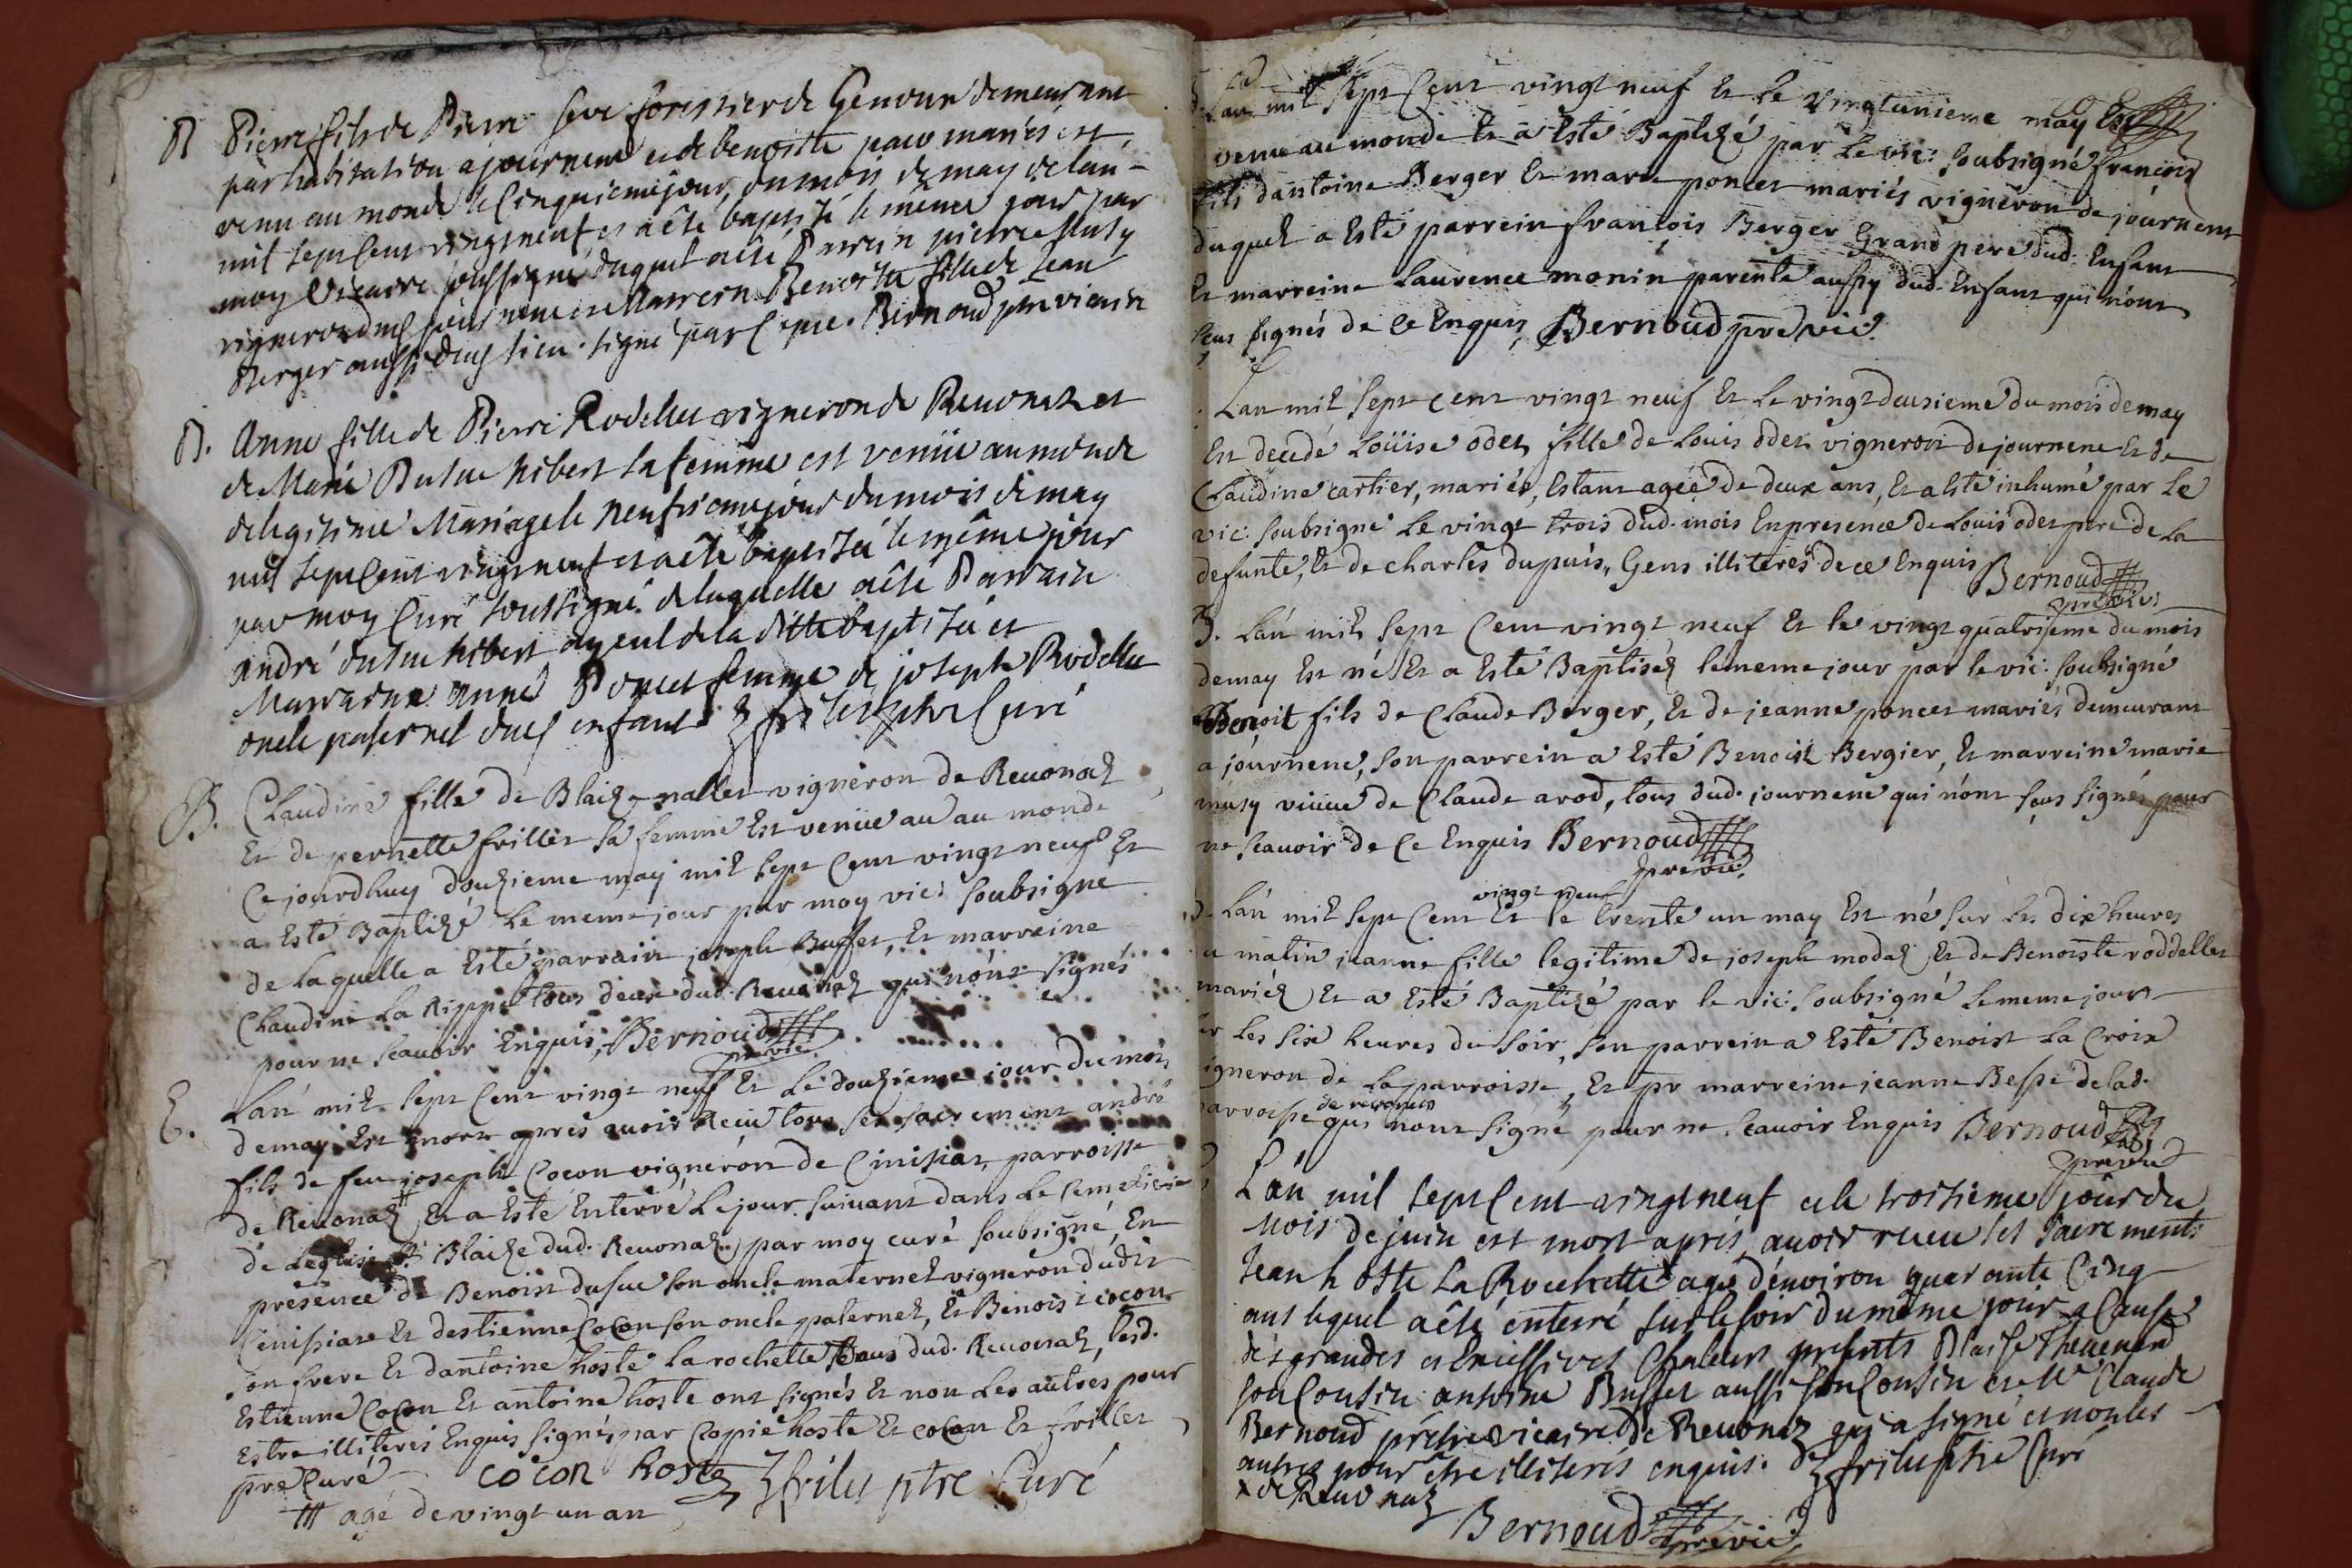 B Pierre fils de Pierre feve forestier de Genoun demeurant
par habitation a journene et de benoitte paco mariés est
venu au monde le Cinquiemejour du mois de may delan-
mil sept Cent vingt neuf et a été baptisé le même jour par
moy Vicaire soussigné duquel a été Parrein pierre Musy
vigneron dud journene et Marrein Benoitte fille de Jean
Berger aussi dud lieu. signé par Copie. Bernoud prvicaire
B. Anne fille de Pierre Rodellet vigneron de Reuonaz et
de Marie Dusuchibert sa femme est venüe au monde
de legitime Mariage le neufviemejour du mois de may
mil sept Cent vingt neuf et a été baptisée le même jour
par moy Curé soussigné de laquelle a été Parrain
andré dusuchibert ayeul de la ditte baptisée et
Marraine anne Poncet femme de joseph Rodellet
oncle paternel dud enfant frilet ptre Curé
B. Claudine fille de Blaize nallet vigneron de Reuonaz
Et de pernette frillet sa femme Est venüe au au monde
Ce jourdhuy douzieme may mil sept Cent vingt neuf Et
a Esté Baptizé Le meme jour par moy vic: soubsigné
de Laquelle a Esté parrain joseph Buffet, Et marreine
Claudine La Rippe tous deux dud. Reuonaz qui nónt signés
pour ne scauoir Enquis, Bernoud
previc.
E. Lan mil sept Cent vingt neuf Et Le douzieme jour du mois
demay Est mort apres auoir Recu tous ses sacrement andré
fils de feu joseph Cocon vigneron de Cinisiat, parroisse
de Reuonaz Et a Esté Enterré Le jour suiuant dans Le Cemetiere
de Leglise St Blaize dud. Reuonaz, par moy curé soubsigné, En
présence de Benoist dusuc son oncle maternel vigneron dudit
Cenissiat Et destienne Cocon son oncle paternel, Et Benoist cocon
son frere Et dantoine hoste La rochette tous dud. Reuonaz, lesd.
Estienne Cocon Et antoine hoste ont signés Et non Les autres pour
Estre illiterés Enquis signé par Copie hoste Et cocon Et frillet
pre Curé - cocon hoste frilet ptre Curé
# agé de vingt un an
Lan mil sept Cent vingt neuf Et Le Vingtunieme may Est
venu au monde Et a Esté Baptizé par Le vic: soubsigné francois
fils dantoine Berger Et marie poncet mariés vigneron de journene
duquel a Esté parrein francois Berger Grand pere dud. Enfant
Et marreine Laurence monin parente aussy dud. Enfant qui nont
sceus signés de ce Enquis, Bernoud pre vic.
Lan mil sept cent vingt neuf Et Le vingtdeusieme du mois demay
Est decedé Loüise odet fille de Louis odet vigneron de journene Et de
Claudine cartier, mariés, Estant agée de deux ans, Et a Esté inhumé par Le
vic: soubsigné Le vingt trois dud. mois Enpresence de Louis odet pere de La
defunte, Et de charles dupuis, Gens illiterés de ce Enquis Bernoud
pre vic:
B. Lan mil sept Cent vingt neuf Et le vingt quatrieme du mois
demay Est né Et a Esté Baptiséz lememe jour par le vic: soubsigné
Benoit fils de Claude Berger, Et de jeanne poncet mariés demeurant
a journene, son parrein a Esté Benoist Bergier, Et marreine marie
musy viuue de Claude arod, tous dud. journene qui nónt sçus signés pour
ne scauoir de Ce Enquis Bernoud
previc.
vingt neuf
Lan mil sept Cent Et le trente un may Est né sur les dix heures
u matin jeanne fille legitime de joseph modaz Et de Benoiste roddellet
mariéz Et a Esté Baptizé par le vic: soubsigné Lememe jour
ur Les six heures du soir, son parrein a Esté Benoist La Croix
igneron de La parroisse, Et pr marreine jeanne Besse delad.
de reuonas
arroisse qui nont signé pour ne scauoir Enquis Bernoud
previc
Lán mil sept Cent vingt neuf et le troisieme jour du
Mois de juin est mort aprés auoir receu les Sacrements
Jean hoste La Rochette x agé d'enuiron quarante Cinq
ans lequel a été enterré sur le soir du même jour a Cause
des grandes et Excessives Chaleurs presents Blaise Theuenin
son Cousin antoine Buffet aussi son Cousin et Mr Claude
Bernoud prêtre vicaire de Reuonaz qui a signé et non les
autres pour être illiterés enquis. frilet ptre Curé
x de Reuonaz
Bernoud
previc